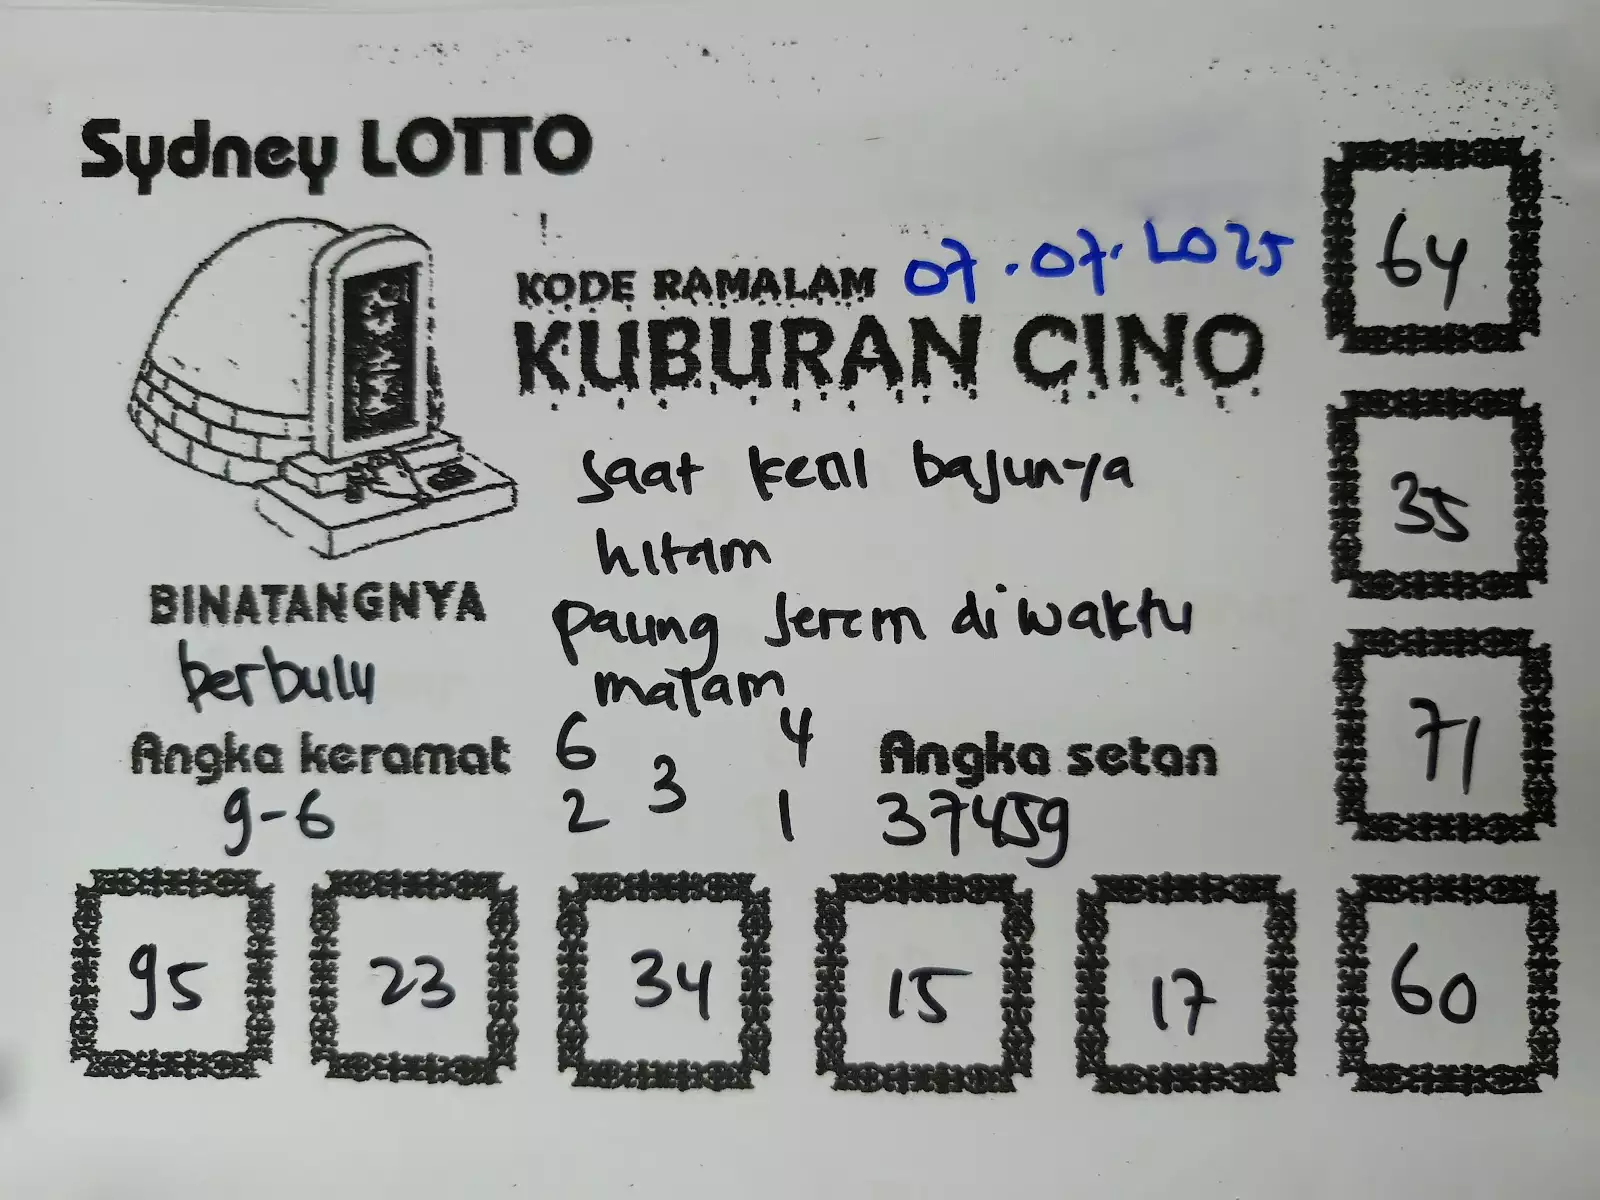 Sydney LOTTO
KODE RAMALAM 07.07.2025
KUBURAN CINO
saat kecil bajunya
hitam
paling serem diwaktu
malam
BINATANGNYA
berbulu
Angka keramat
9-6
6 4
3
2 1
Angka setan
37459
64
35
71
95 23 34 15 17 60